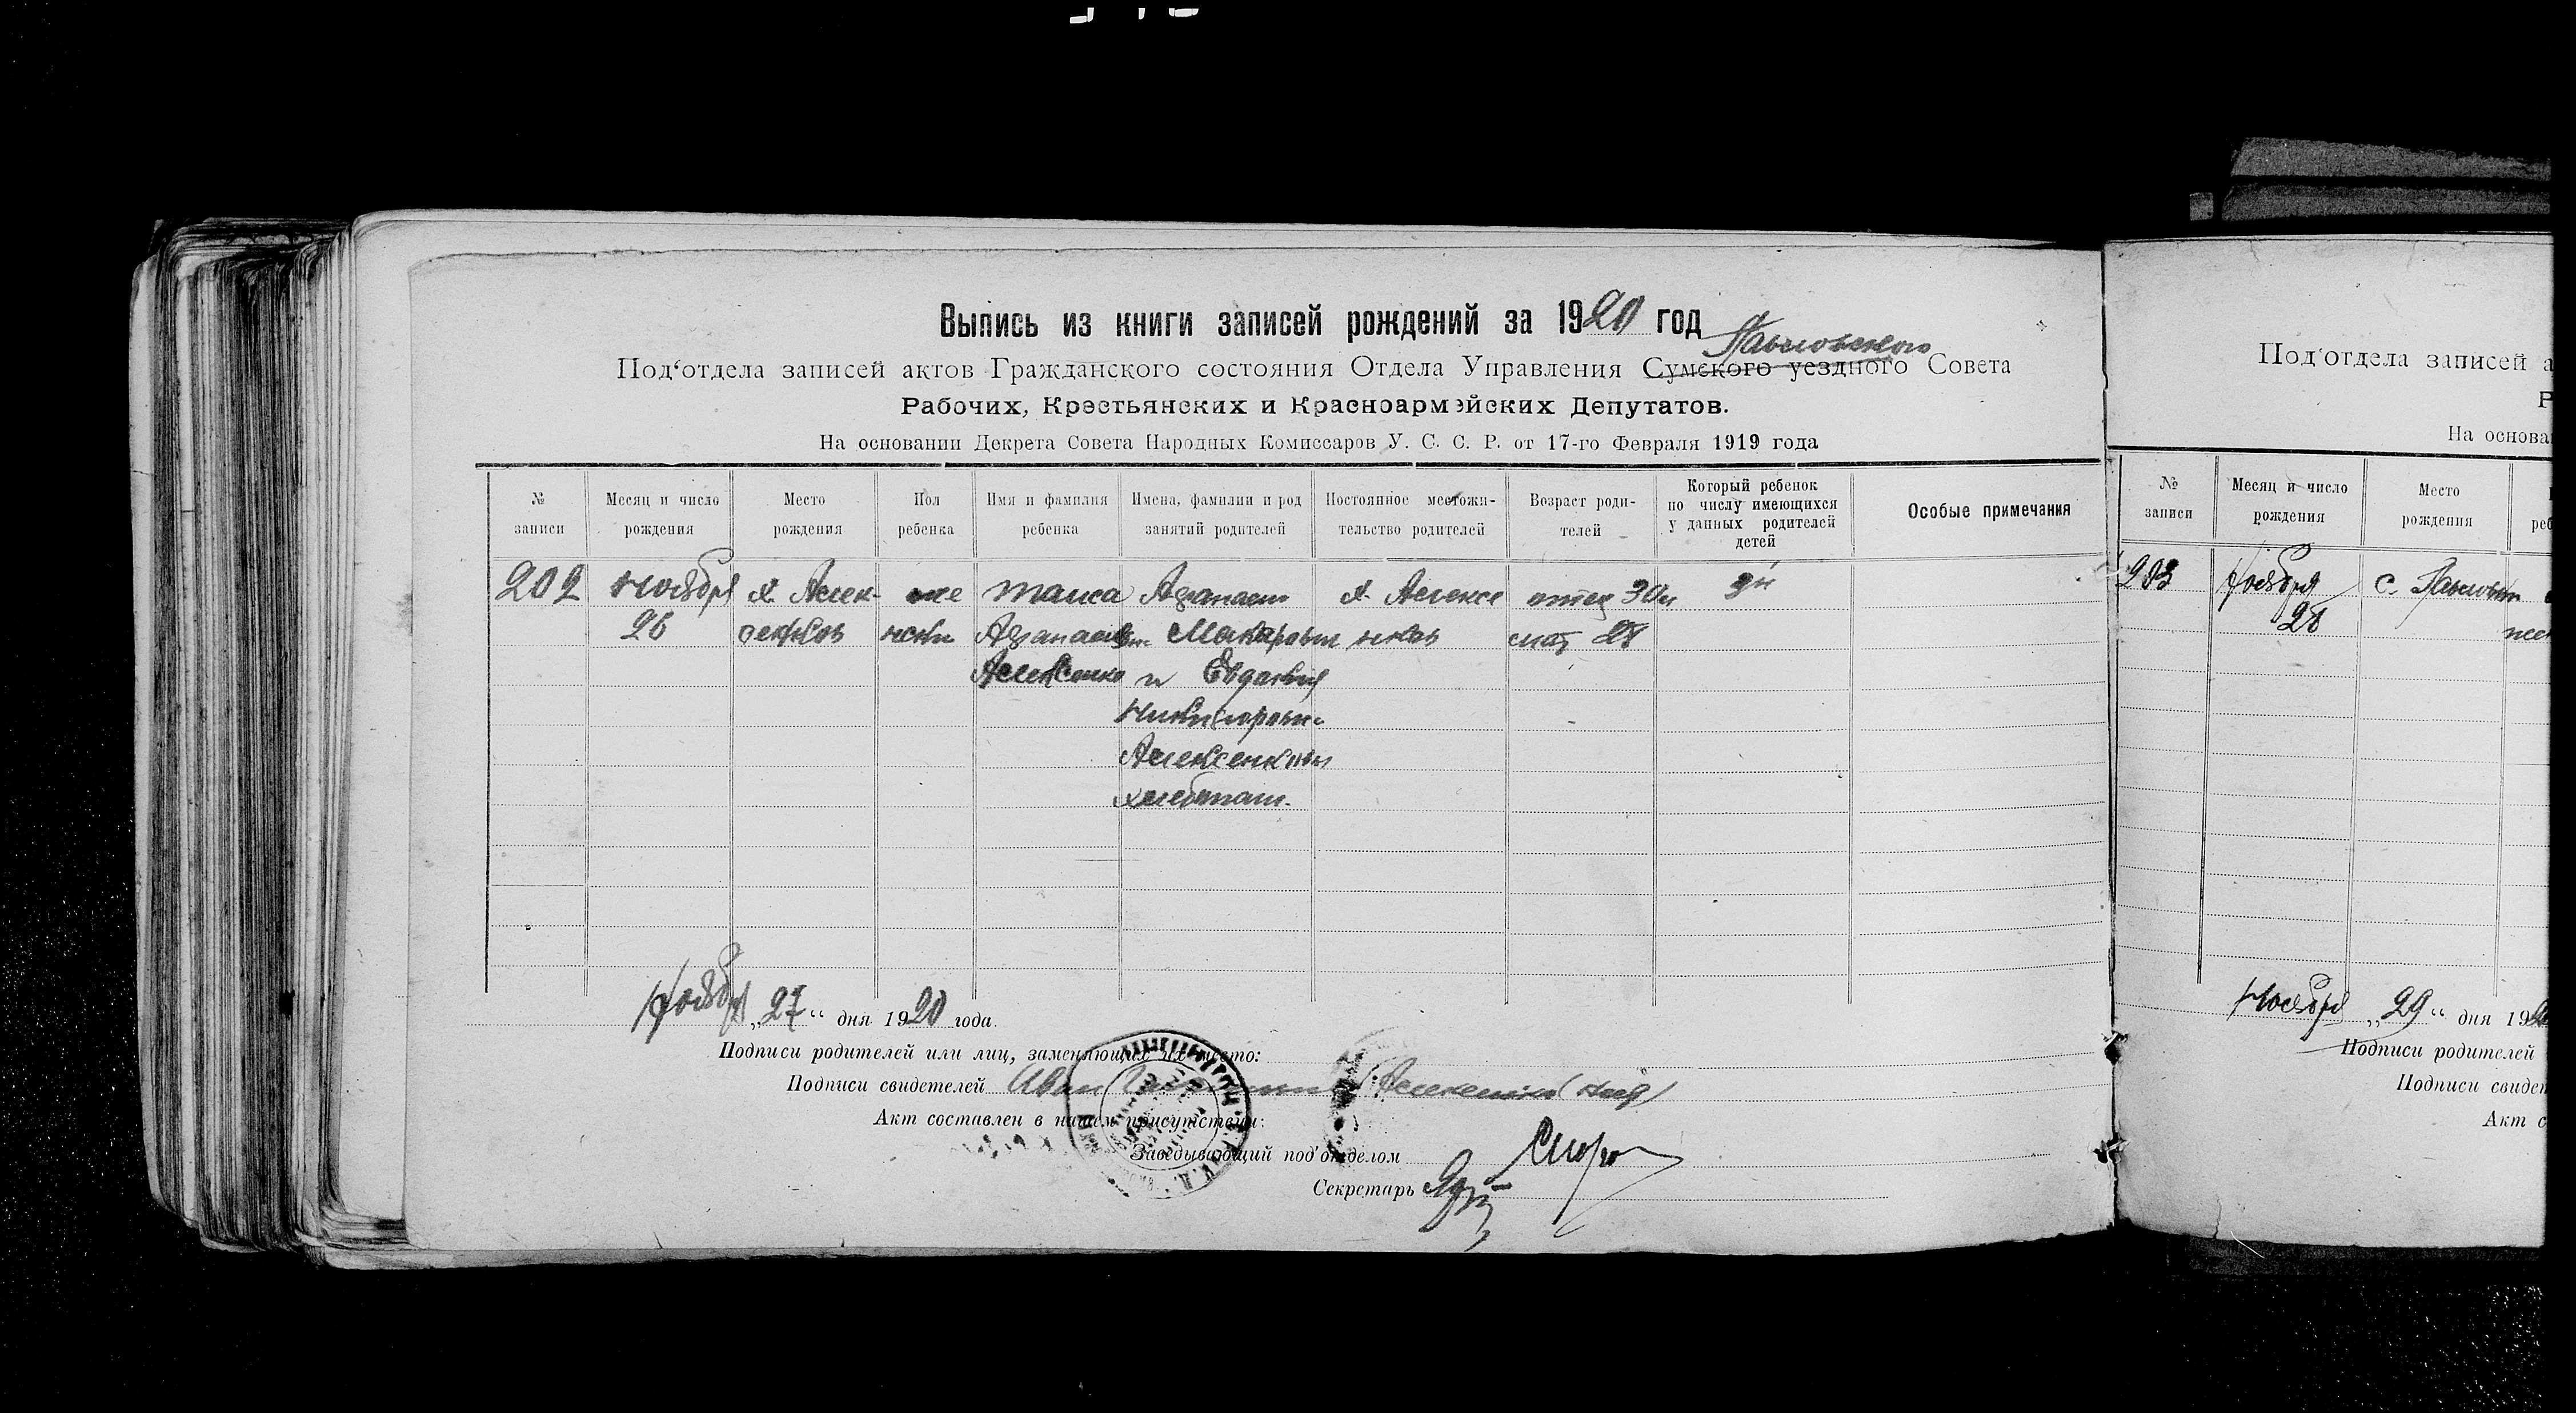 Выпись из книги записей рождений за 1920 год
Павловского
Под‘отдела записей актов Гражданского состояния Отдела Управления Сумского уездного Совета
Рабочих, Крестьянских и Красноармейских Депутатов.
На основании Декрета Совета Народных Комиссаров У. С. С. Р. от 17-го Февраля 1919 года
№ записи
Месяц и число рождения
Место рождения
Пол ребенка
Имя и фамилия ребенка
Имена, фамилии и род занятий родителей
Постоянное местожительство родителей
Возраст родителей
Который ребенок по числу имеющихся у данных родителей детей
Особые примечания
202
Ноября
26
х. Алек-
сенков
же
нски
Таиса
Афанасьев
Алексенко
Афанасий
Макарович
и Евдокия
Никифоровн
Алексенковы
хлебопаш.
х. Алексе
нков
отец 30 л
мать 28
3й
Ноября „27“ дня 1920 года.
Подписи родителей или лиц, заменяющих их место:
Подписи свидетелей Иван Алексенко
Акт составлен в нашем присутствии:
Заведывающий под‘отделом
Секретарь
Под‘отдела записей а
Р
На основа
№ записи
Месяц и число рождения
Место рождения
реб
203
Ноября
28
с. Павловки
жен
Ноября „29“ дня 19
Подписи родителей
Подписи свидет
Акт с